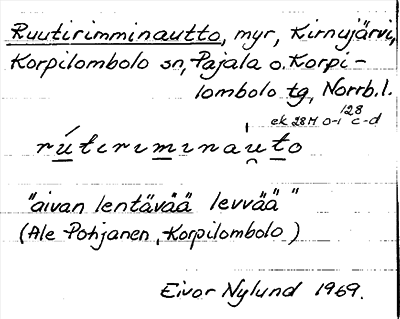 Ruutirimminautto, myr, Kirnujärvi,
Korpilombolo sn, Pajala o. Korpi-
lombolo tg, Norrb. l.
ek 28M o-i 128 c-d
rútirimináuto
"aivan lentävää levvää"
(Ale Pohjanen, Korpilombolo)
Eivor Nylund 1969.